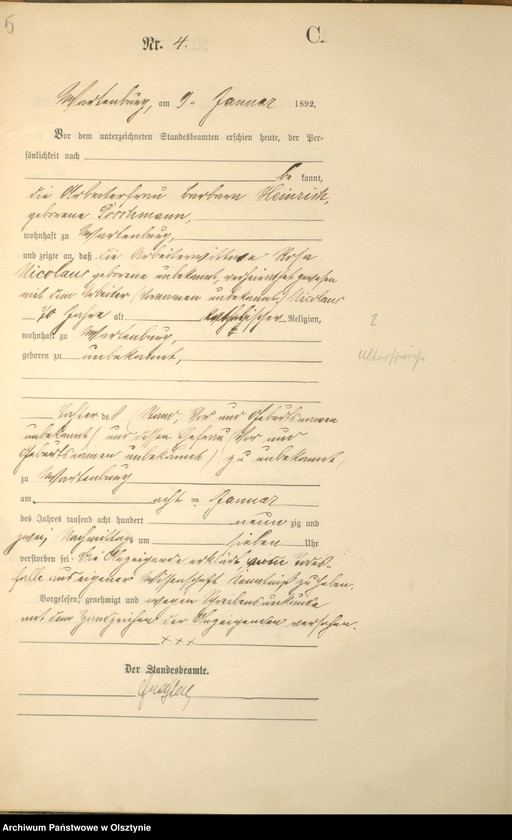 5
Nr. 4.
C.
Wartenburg, am 9. Januar 1892.
Vor dem unterzeichneten Standesbeamten erschien heute, der Per-
sönlichkeit nach
be kannt,
die Arbeiterfrau Barbara Heinrich,
geborene
wohnhaft zu Wartenburg,
und zeigte an, daß die Arbeiterwittwe Rosa
Nicolaus geborene unbekannt, verheirathet gewesen
mit dem Arbeiter (Vornamen unbekannt) Nicolaus
70 Jahre alt katholischer Religion,
wohnhaft zu Wartenburg,
geboren zu unbekannt,
Tochter des (Stand, Vor und Geburtsnamen
unbekannt) und dessen Ehefrau (Vor und
Geburtsnamen unbekannt) zu unbekannt,
zu Wartenburg
am acht ten Januar
des Jahres tausend acht hundert neun zig und
zwei Nachmittags um sieben Uhr
verstorben sei. Die Anzeigende erklärte vom Todes-
falle aus eigener Wissenschaft Kenntniß zu haben.
Vorgelesen, genehmigt und wegen Schreibensunkunde
mit dem Handzeichen der Anzeigenden versehen.
+++
Der Standesbeamte.
?
Altersschwäche
Archiwum Państwowe w Olsztynie